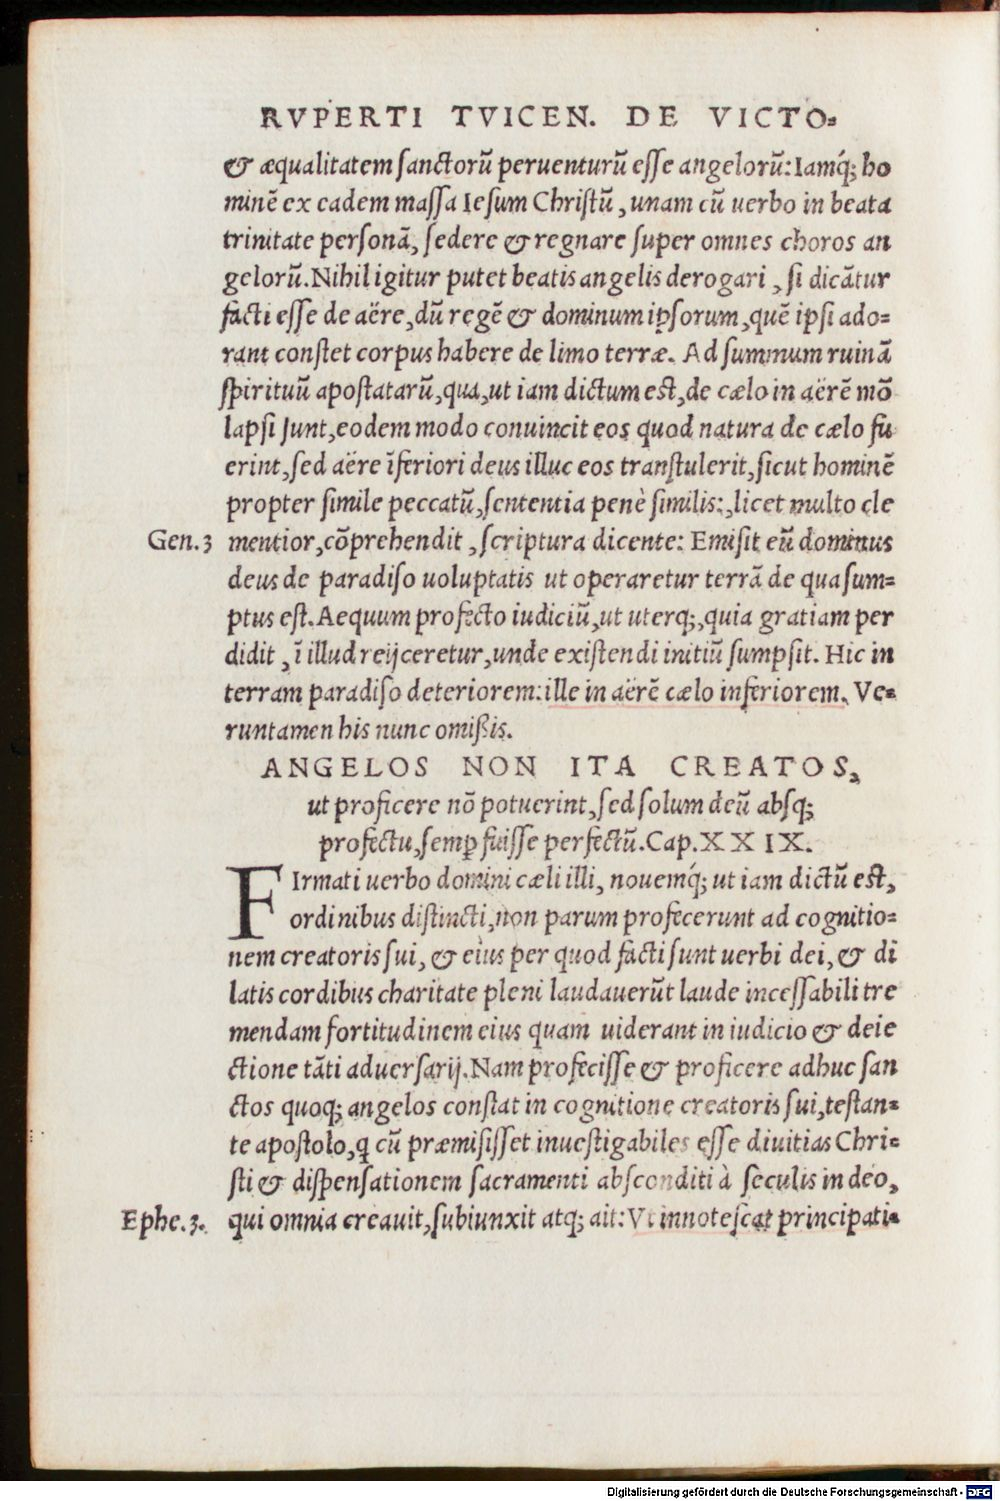 RVPERTI TVICEN. DE VICTO-
& æqualitatem sanctorũ peruenturũ esse angelorũ: Iamq́; ho
minẽ ex eadem massa Iesum Christũ, unam cũ uerbo in beata
trinitate personã, sedere & regnare super omnes choros an
gelorũ. Nihil igitur putet beatis angelis derogari, si dicãtur
facti esse de aëre, dũ regẽ & dominum ipsorum, quẽ ipsi ado-
rant constet corpus habere de limo terræ. Ad summum ruinã
spirituũ apostatarũ, qua, ut iam dictum est, de cælo in aërẽ mõ
lapsi sunt, eodem modo conuincit eos quod natura de cælo fu
erint, sed aëre ĩferiori deus illuc eos transtulerit, sicut hominẽ
propter simile peccatũ, sententia penè similis:, licet multo cle
Gen. 3 mentior, cõprehendit, scriptura dicente: Emisit eũ dominus
deus de paradiso uoluptatis ut operaretur terrã de qua sum-
ptus est. Aequum profecto iudiciũ, ut uterq;, quia gratiam per
didit, ĩ illud reijceretur, unde existendi initiũ sumpsit. Hic in
terram paradiso deteriorem: ille in aërẽ cælo inferiorem. Ve-
runtamen his nunc omißis.
ANGELOS NON ITA CREATOS,
ut proficere nõ potuerint, sed solum deũ absq;
profectu, semꝑ fuisse perfectũ. Cap. XXIX.
FIrmati uerbo domini cæli illi, nouemq́; ut iam dictũ est,
ordinibus distincti, non parum profecerunt ad cognitio-
nem creatoris sui, & eius per quod facti sunt uerbi dei, & di
latis cordibus charitate pleni laudauerũt laude incessabili tre
mendam fortitudinem eius quam uiderant in iudicio & deie
ctione tãti aduersarij. Nam profecisse & proficere adhuc san
ctos quoq; angelos constat in cognitione creatoris sui, testan-
te apostolo, ꝗ cũ præmisisset inuestigabiles esse diuitias Chri-
sti & dispensationem sacramenti absconditi à seculis in deo,
Ephe. 3. qui omnia creauit, subiunxit atq; ait: Vt innotescat principati-
Digitalisierung gefördert durch die Deutsche Forschungsgemeinschaft - DFG